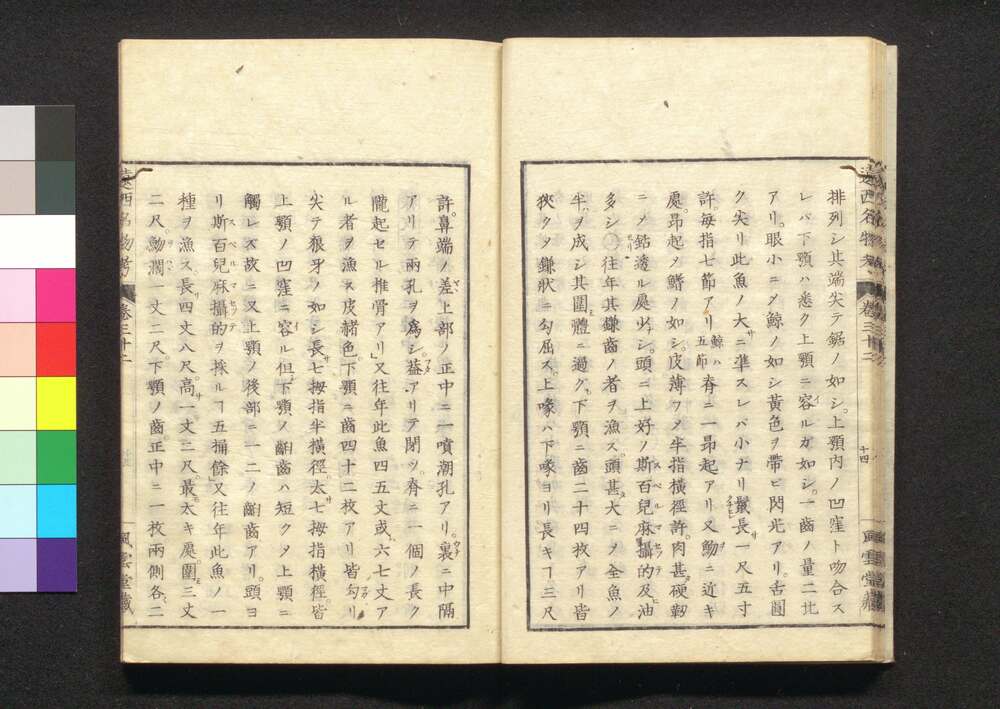 排列シ其端尖テ鋸ノ如シ。上顎内ノ凹窪ト吻合ス
レバ下顎ハ悉ク上顎ニ容ルガ如シ。一齒ノ量二比
アリ。眼小ニメ鯨ノ如シ黄色ヲ帶ビ閃光アリ。舌圓
ク尖リ此魚ノ大サニ準スレバ小ナリ鬣長サ一尺五寸
許毎指七節アリ鯨ハ五節脊ニ一昂起アリ又鰴ニ近キ
處昂起メ鰭ノ如シ。皮薄フメ半指横徑許。肉甚硬靱
ニメ鈷透ル處少シ。頭ニ上好ノ斯百兒麻攝的及油
多シ○往年其鎌齒ノ者ヲ漁ス。頭甚大ニメ全魚ノ
半ヲ成シ其圍體ニ過グ。下顎ニ齒二十四枚アリ皆
狹クメ鎌狀ニ勾屈ス。上喙ハ下喙ヨリ長キヿ三尺
遠西名物考 卷三十二 十四 風雲堂藏
許。鼻端ノ差上部ノ正中ニ一噴潮孔アリ。裏ニ中隔
アリテ兩孔ヲ爲シ。葢アリテ閉ツ。脊ニ一個ノ長ク
隴起セル推骨アリ」又往年此魚四五丈或ハ六七丈ア
ル者ヲ漁ス皮赭色。下顎ニ齒四十二枚アリ皆勾リ
尖テ狼牙ノ如シ長サ七拇指半横徑。太サ七拇指横徑。皆
上顎ノ凹窪ニ容ル但下顎ノ齨齒ハ短クメ上顎ニ
觸レズ故ニ又上顎ノ後部ニ一二ノ齨齒アリ。頭ヨ
リ斯百兒麻攝的ヲ採ルヿ五捅餘又往年此魚ノ一
種ヲ漁ス。長サ四丈八尺。高サ一丈二尺。最太キ處。圍三丈
二尺鰴濶一丈二尺。下顎ノ齒正中ニ一枚兩側各二
遠西名物考 卷三十二 風雲堂藏